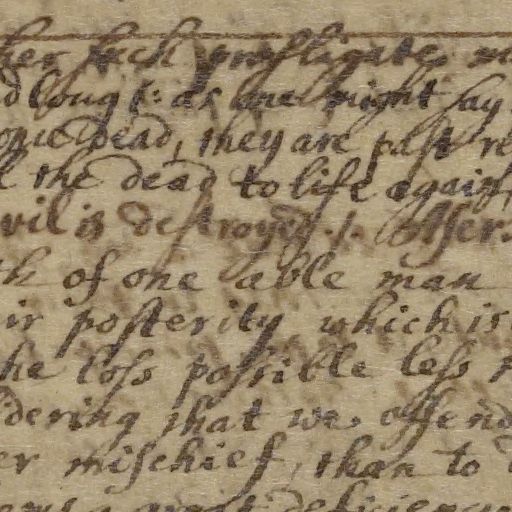 her such profligate
d long /: as one might say
Dead, they are past re
the dead to life again,
vil is destroyed ./.
th of one able man
ir posterity which is
he loss possible less
dering that we offend
er mischief, than to
great deficiency